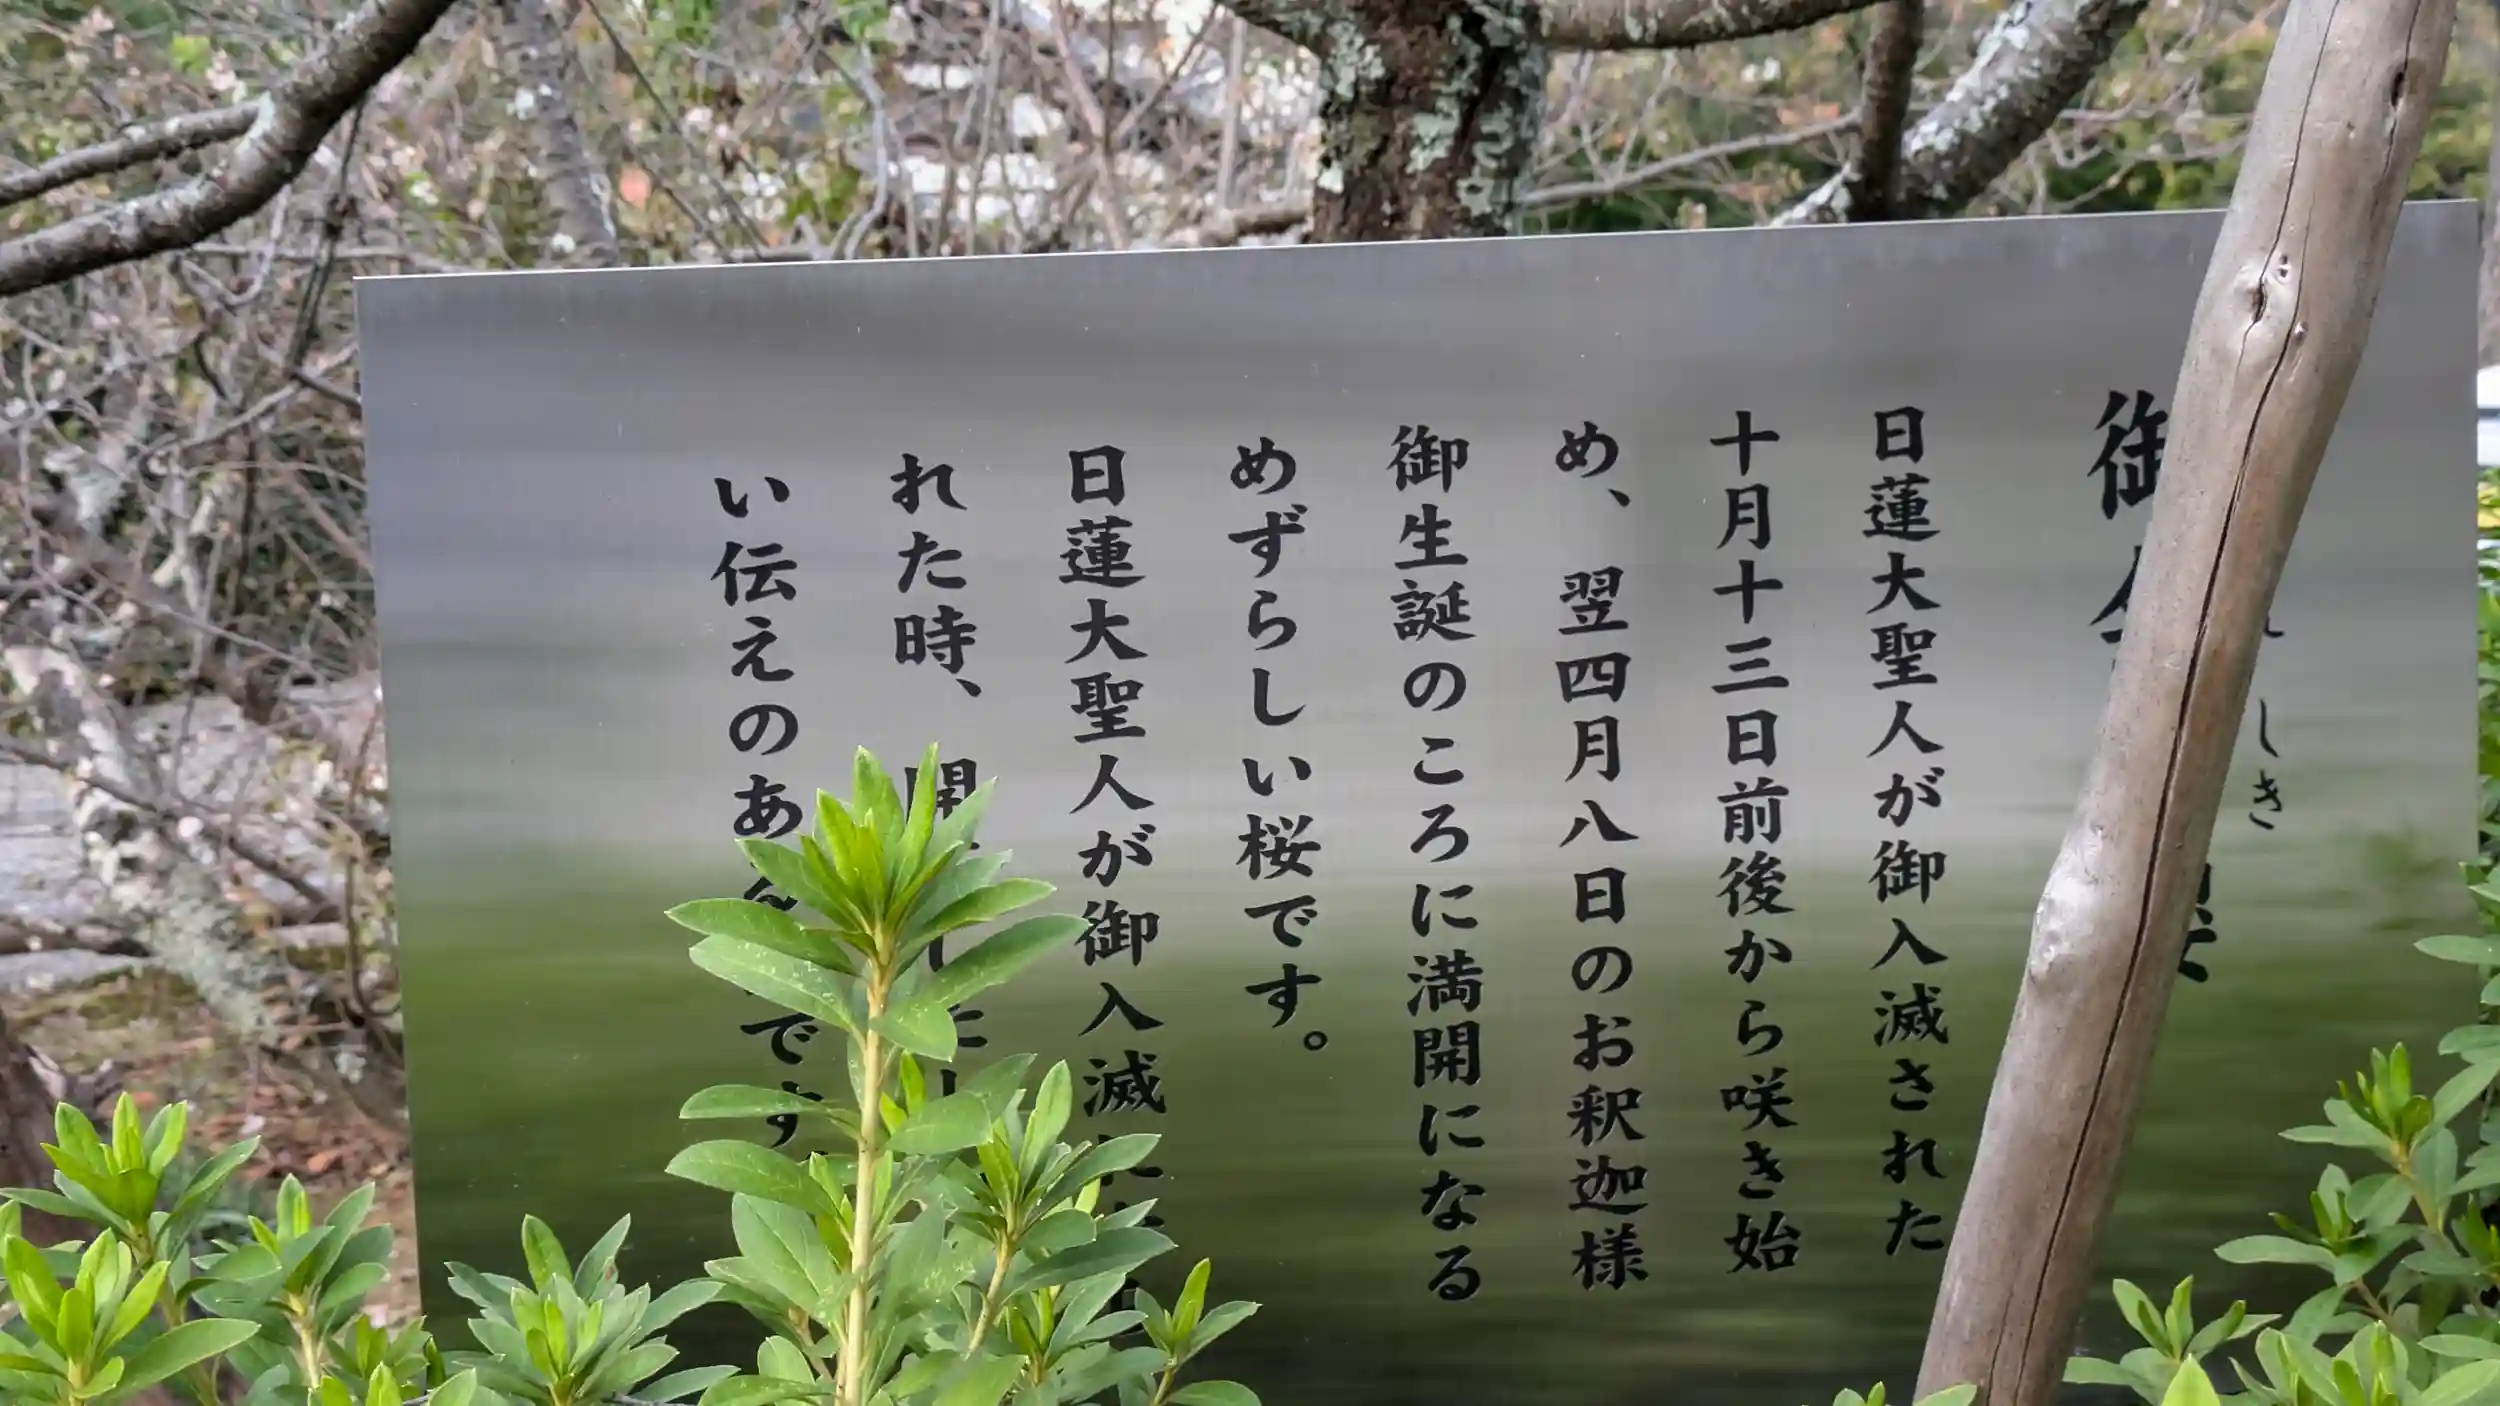 御
しき
日蓮大聖人が御入滅された
十月十三日前後から咲き始
め、翌四月八日のお釈迦様
御生誕のころに満開になる
めずらしい桜です。
日蓮大聖人が御入滅
れた時、開
い伝えのあ
です